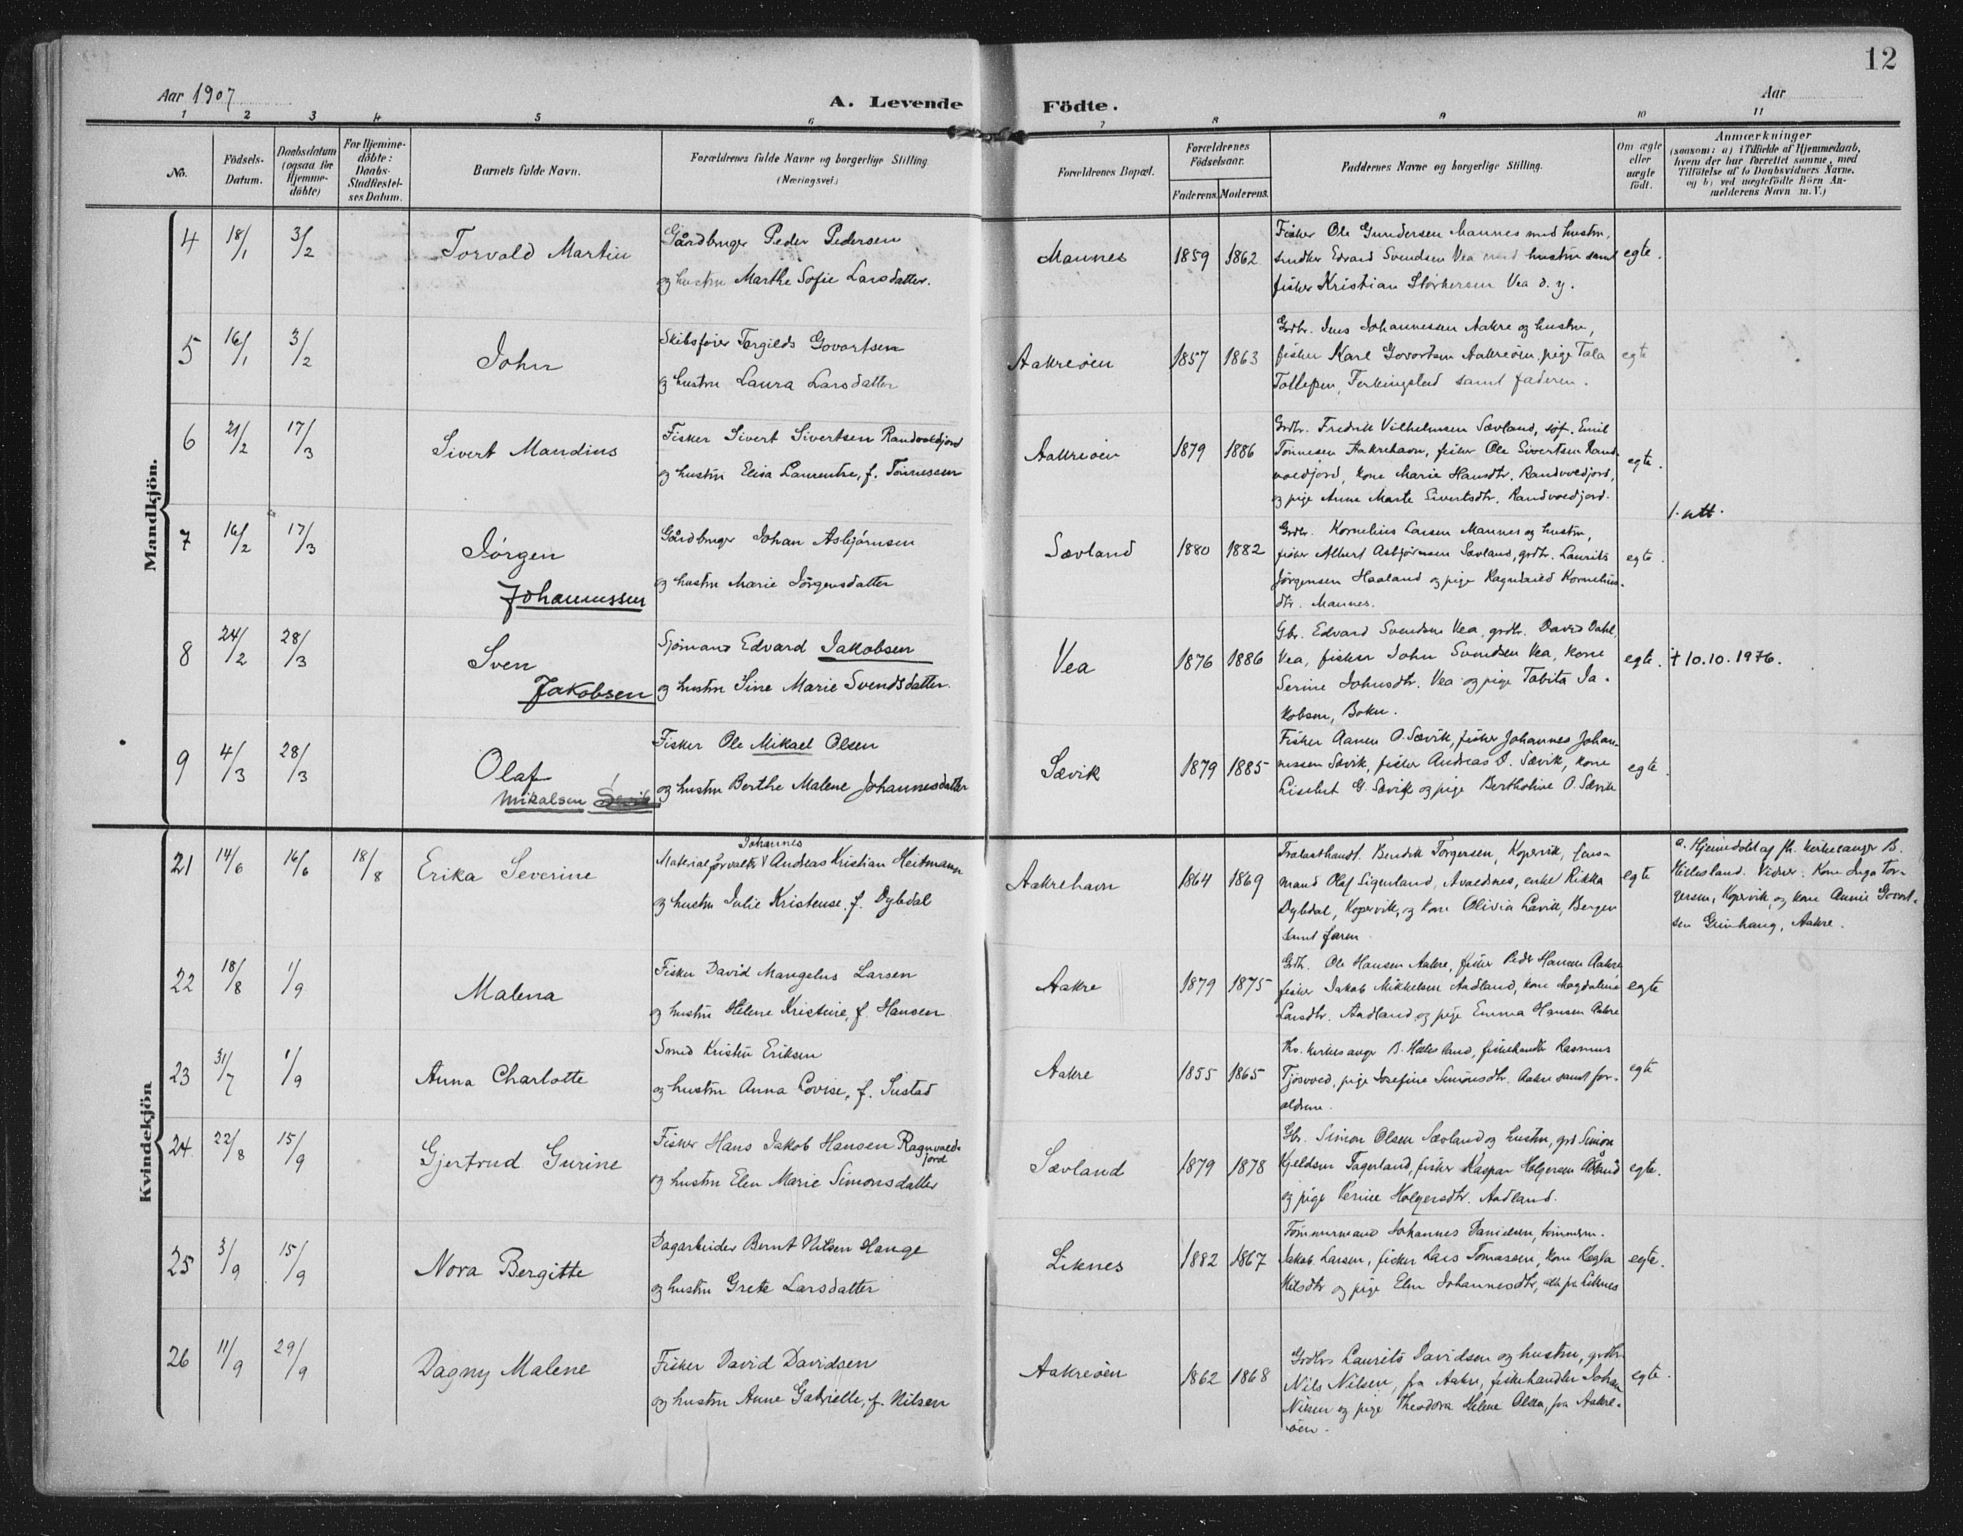 12
Aar 1907
A. Levende Födte.
Aar
1 2 3 4 5 6 7 8 9 10 11
No.
Födsels-Datum.
Daabsdatum (ogsaa for Hjemme-döbte)
For Hjemme-döbte: Daabs-Stadfæstel-ses Datum.
Barnets fulde Navn.
Forældrenes fulde Navne og borgerlige Stilling (Næringsvei.)
Forældrenes Bopæl.
Forældrenes Födselsaar.
Faderens. Moderens.
Faddernes Navne og borgerlige Stilling.
Om ægte eller uægte födt.
Anmærkninger
(saasom: a) i Tilfælde af Hjemmedaab, hvem der har forrettet samme, med Tilföielse af to Daabsvidners Navne, og b) ved uægtefödte Börn An-melderens Navn m. V.)
Mandkjön.
4 18/1 3/2 Torvald Martin
Gårdbruger Peder Pedersen
og hustru Marthe Sofie Larsdatter.
Mannes 1859 1862
Fisker Ole Gundersen Mannes med hustru,
snedker Edvard Svendsen Vea med hustru samt
fisker Kristian Størkersen Vea d. y.
egte.
5 16/1 3/2 John
Skibsfører Torgilds Govertsen
og hustru Laura Larsdatter
Aakreøen 1857 1863
Grdbr. Jens Johannessen Aakre og hustru,
fisker Karl Govertsen Aakreøen, pige Tala
Tollefsen, Ferkingstad samt faderen.
egte
6 21/2 17/3 Sivert Mandius
Fisker Sivert Sivertsen Randvoldfjord
og hustru Elisa Laurentse, f. Tønnessen
Aakreøen 1879 1886
Grdbr. Fredrik Vilhelmsen Sævland, søf. Emil
Tønnesen Aakrehavn, fisker Ole Sivertsen Rand-
voldfjord, kone Marie Hansdtr. Randvoldfjord,
og pige Anne Marte Sivertsdtr. Randvoldfjord.
egte.
1. att.
7 16/2 17/3 Jørgen
Johannessen
Gårdbruger Johan Asbjørnsen
og hustru Marie Jørgensdatter
Sævland 1880 1882
Grdbr. Kornelius Larsen Mannes og hustru,
fisker Albert Asbjørnsen Sævland, grdbr. Laurits
Jørgensen Haaland og pige Ragnhild Kornelius-
dtr. Mannes.
egte.
8 24/2 28/3 Sven
Jakobsen
Sjømand Edvard Jakobsen
og hustru Sine Marie Svendsdatter.
Vea 1876 1886
Gbr. Edvard Svendsen Vea, grdbr. David Dahl,
Vea, fisker John Svendsen Vea, kone
Serine Johnsdtr. Vea og pige Tabita Ja-
kobsen, Bokn.
egte.
† 10.10.1976.
9 4/3 28/3 Olaf
Mikalsen
Fisker Ole Mikael Olsen
og hustru Berthe Malene Johannesdatter
Sævik 1879 1885
Fisker Aanen O. Sævik, fisker Johannes Johan-
nessen Sævik, fisker Andreas O. Sævik, kone
Lisebet G. Sævik og pige Bertholine O. Sævik
egte.
Kvindekjön
21 14/6 16/6 18/8 Erika Severine
Johannes
Materialforvalter V Andreas Kristian Heitmann
og hustru Julie Kristense, f. Dybdal
Aakrehavn 1864 1869
Trælasthandl. Bendik Torgersen, Kopervik, fens-
mand Olaf Sigerland, Avaldsnes, enke Rikka
Dybdal, Kopervik, og kone Olivia Lavik, Bergen
samt faren
egte
a. Hjemmedøbt af fh. kirkesanger B.
Hielesland. Vidner: Kone Inga Tor-
gersen, Kopervik, og kone Annie Govert-
sen Grinhaug, Aakre.
22 18/8 1/9 Malena
Fisker David Mangelus Larsen
og hustru Helene Kristine, f. Hansen
Aakre 1879 1875
Grdb. Ole Hansen Aakre, fisker Peder Hansen Aakre
fisker Jakob Mikkelsen Aadland, kone Magdalene
Larsdtr. Aadland og pige Emma Hansen Aakre
egte
23 31/7 1/9 Anna Charlotte
Smed Kristen Eriksen
og hustru Anna Lovise, f. Sustad
Aakre 1855 1865
Fhv. kirkesanger B. Hielesland, fiskehandler Rasmus
Tjosvold, pige Josefine Simonsdtr. Aakre samt for-
ældrene.
egte
24 22/8 15/9 Gjertrud Gurine
Fisker Hans Jakob Hansen Ragnvald-
fjord
og hustru Elen Marie Simonsdatter
Sævland 1879 1878
Gbr. Simon Olsen Sævland og hustru, grd Simon
Kjeldsen Tagerland, fisker Kaspar Holgersen Ådland
og pige Pernie Holgersdtr. Aadland.
egte.
25 3/9 15/9 Nora Bergitte
Dagarbeider Bernt Nilsen Hauge
og hustru Grete Larsdatter
Liknes 1882 1867
Tømmermand Johannes Danielsen, tømmerm.
Jakob Larsen, fisker Lars Tomassen, kone
Nilsdtr og pige Elen Johannesdtr, alle fra Liknes
egte.
26 11/9 29/9 Dagny Malene
Fisker David Davidsen
og hustru Anne Gabrielle, f. Nilsen
Aakreøen 1862 1868
Grdbr Laurits Davidsen og hustru, grdbr
Nils Nilsen, fra Aakre, fiskehandler Johan
Nilsen og pige Theodora Helene Olsen, fra Aakre-
øen.
egte.